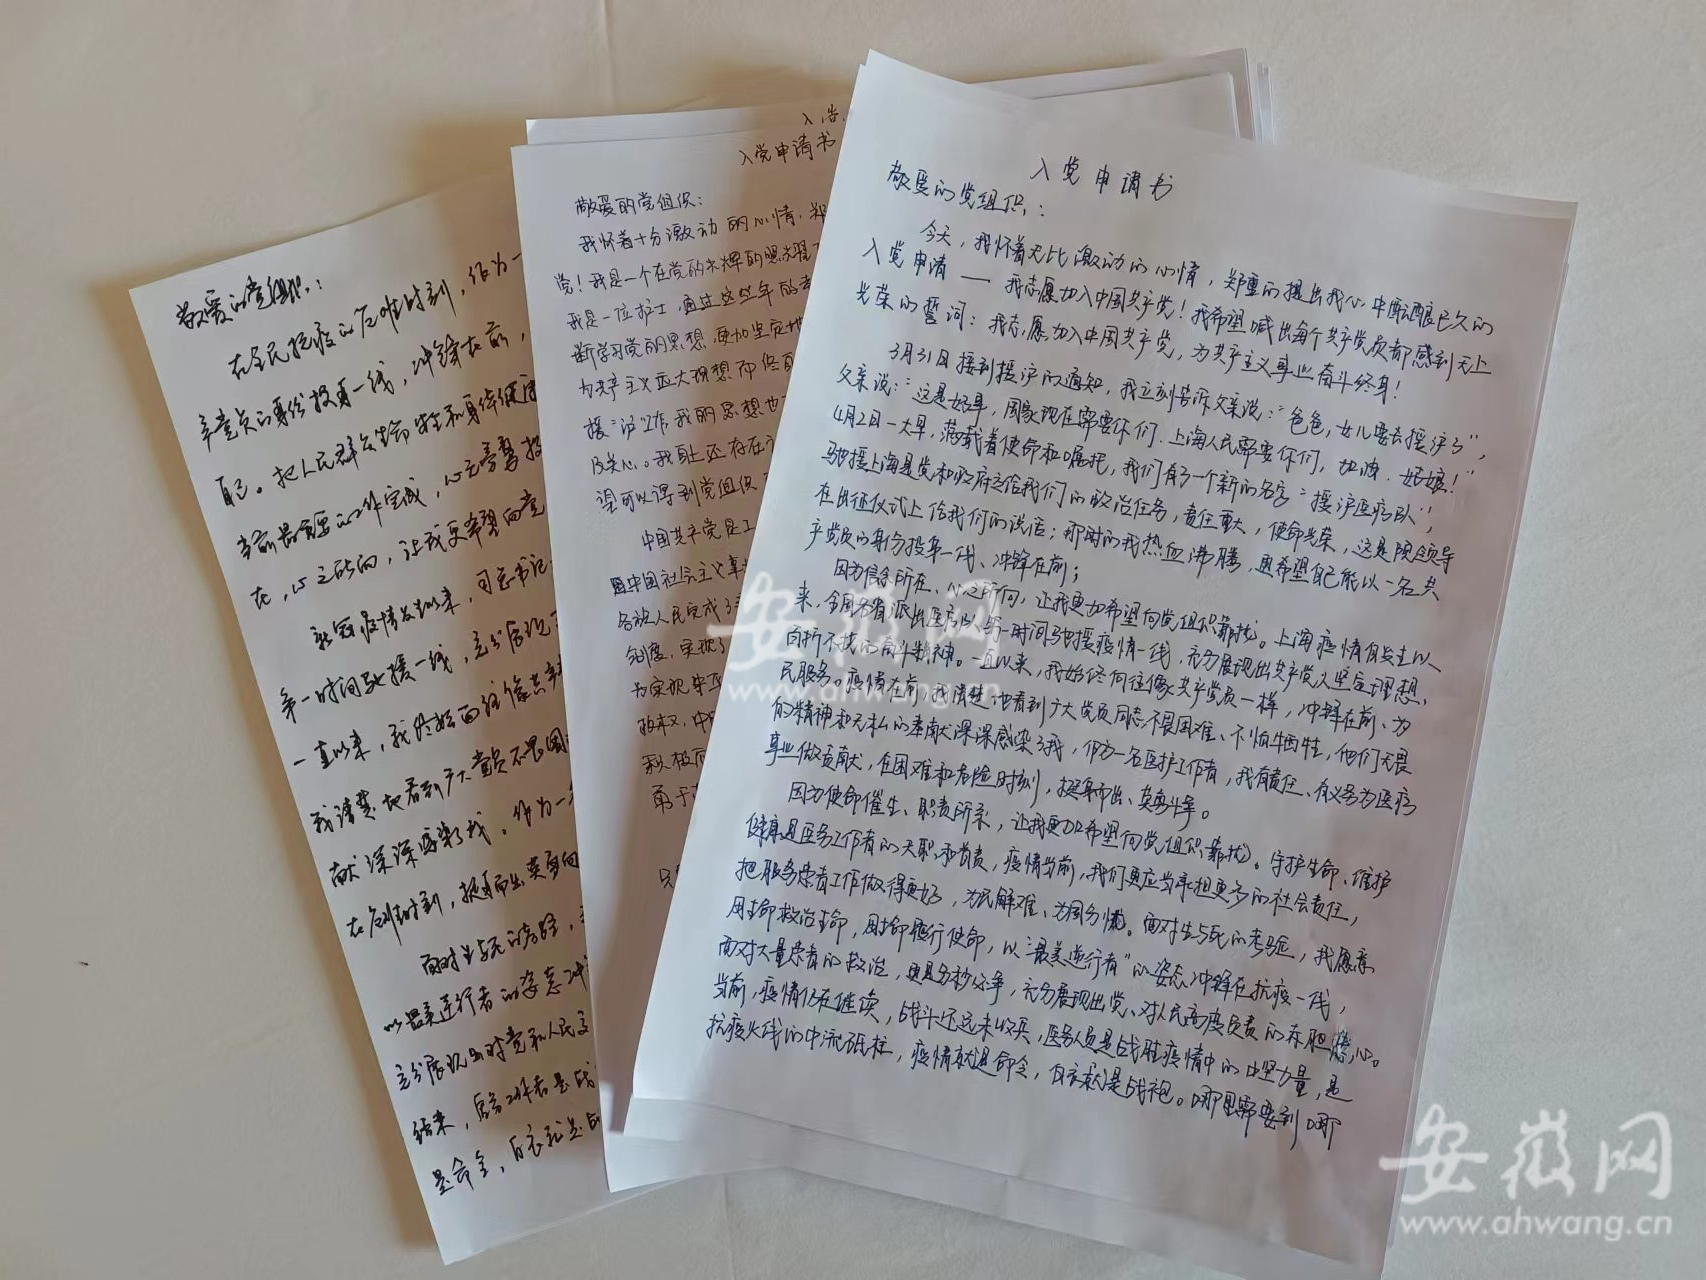 敬爱的党组织：
在全民抗疫的危难时刻，作为一
自己。把人民群众生命安全和身体健康
在，心之所向，让我更希望向党
新冠疫情发生以来，习总书记
第一时间驰援一线，充分展现
一直以来，我始终向往像共产
我清楚地看到广大党员不畏困
献深深感染了我。作为一
面对生与死的考验，
以最美逆行者的姿态冲
充分展现出对党和人民
是命令，白衣就是战
入党申请书
敬爱的党组织：
我怀着十分激动的心情，郑
党！我是一个在党的光辉的照耀
我是一位护士，通过这些年的
断学习党的思想，更加坚定地
为共产主义远大理想而
援沪工作，我的思想也
及关心。我自己还存在
望可以得到党组织
中国共产党是工
中国社会主义事业
各族人民完成了
制度，实现了
政权，中
积极
勇于
入党申请书
敬爱的党组织：
今天，我怀着无比激动的心情，郑重的提出我心中酝酿已久的
入党申请——我志愿加入中国共产党！我希望喊出每个共产党员都感到无上
光荣的誓词：我志愿加入中国共产党，为共产主义事业奋斗终身！
3月31日接到援沪的通知，我立刻告诉父亲说：“爸爸，女儿要去援沪了”，
父亲说：“这是好事，国家现在需要你们、上海人民需要你们，加油，姑娘！”
4月2日一大早，满载着使命和嘱托，我们有了一个新的名字“援沪医疗队”，
驰援上海是党和政府交给我们的政治任务，责任重大，使命光荣，这是院领导
在出征仪式上给我们的说话；那时的我热血沸腾，更希望自己能以一名共
产党员的身份投身一线、冲锋在前；
因为信念所在、心之所向，让我更加希望向党组织靠拢。上海疫情发生以
来，全国各省派出医疗队第一时间驰援疫情一线，充分展现出共产党人坚定理想、
百折不挠的奋斗精神。一直以来，我始终向往像共产党员一样，冲锋在前、为
民服务。疫情在前，我清楚地看到广大党员同志不畏困难、不怕牺牲，他们无畏
的精神和无私的奉献深深感染了我，作为一名医护工作者，我有责任、有义务为医疗
事业做贡献，在困难和危险时刻，挺身而出、英勇斗争。
因为使命催生、职责所系，让我更加希望向党组织靠拢。守护生命、维护
健康是医务工作者的天职和首责，疫情当前，我们更应当承担更多的社会责任，
把服务患者工作做得更好，为民解难、为国分忧。面对生与死的考验，我愿意
用生命救治生命，用生命履行使命，以“最美逆行者”的姿态冲锋在抗疫一线，
面对大量患者的救治，更是分秒必争，充分展现出党、对人民高度负责的赤胆忠心。
当前，疫情仍在继续，战斗还远未收兵，医务人员是战胜疫情中的中坚力量，是
抗疫火线的中流砥柱，疫情就是命令，白衣就是战袍。哪里需要到哪
安徽网
www.ahwang.cn
安徽网
www.ahwang.cn